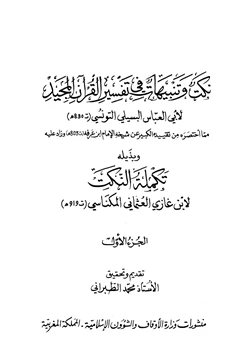 نكت وتنبيهات في تفسير القرآن المجيد
لأبي العباس البسيلي التونسي (ت 830هـ)
مما اختصره من تقييده الكبير عن شيخه الإمام ابن عرفة (ت 803هـ) وزاد عليه
وبذيله
تكملة النكت
لابن غازي العثماني المكناسي (ت 919هـ)
الجزء الأول
تقديم وتحقيق
الأستاذ محمد الطبراني
منشورات وزارة الأوقاف والشؤون الإسلامية - المملكة المغربية